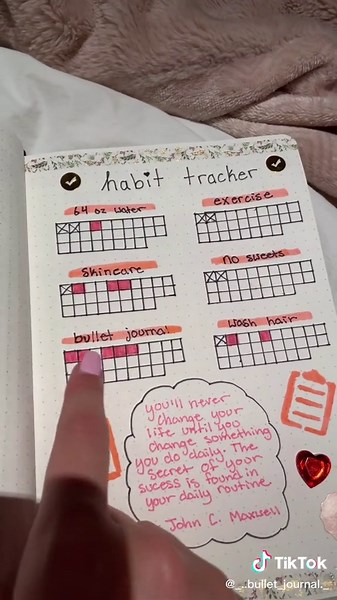 habit tracker
64 oz water
exercise
skincare
no sweets
bullet journal
wash hair
you'll never
change your
life until you
change something
you do daily. The
secret of your
sucess is found in
your daily routine
John C. Maxwell
TikTok
@_.bullet_journal._